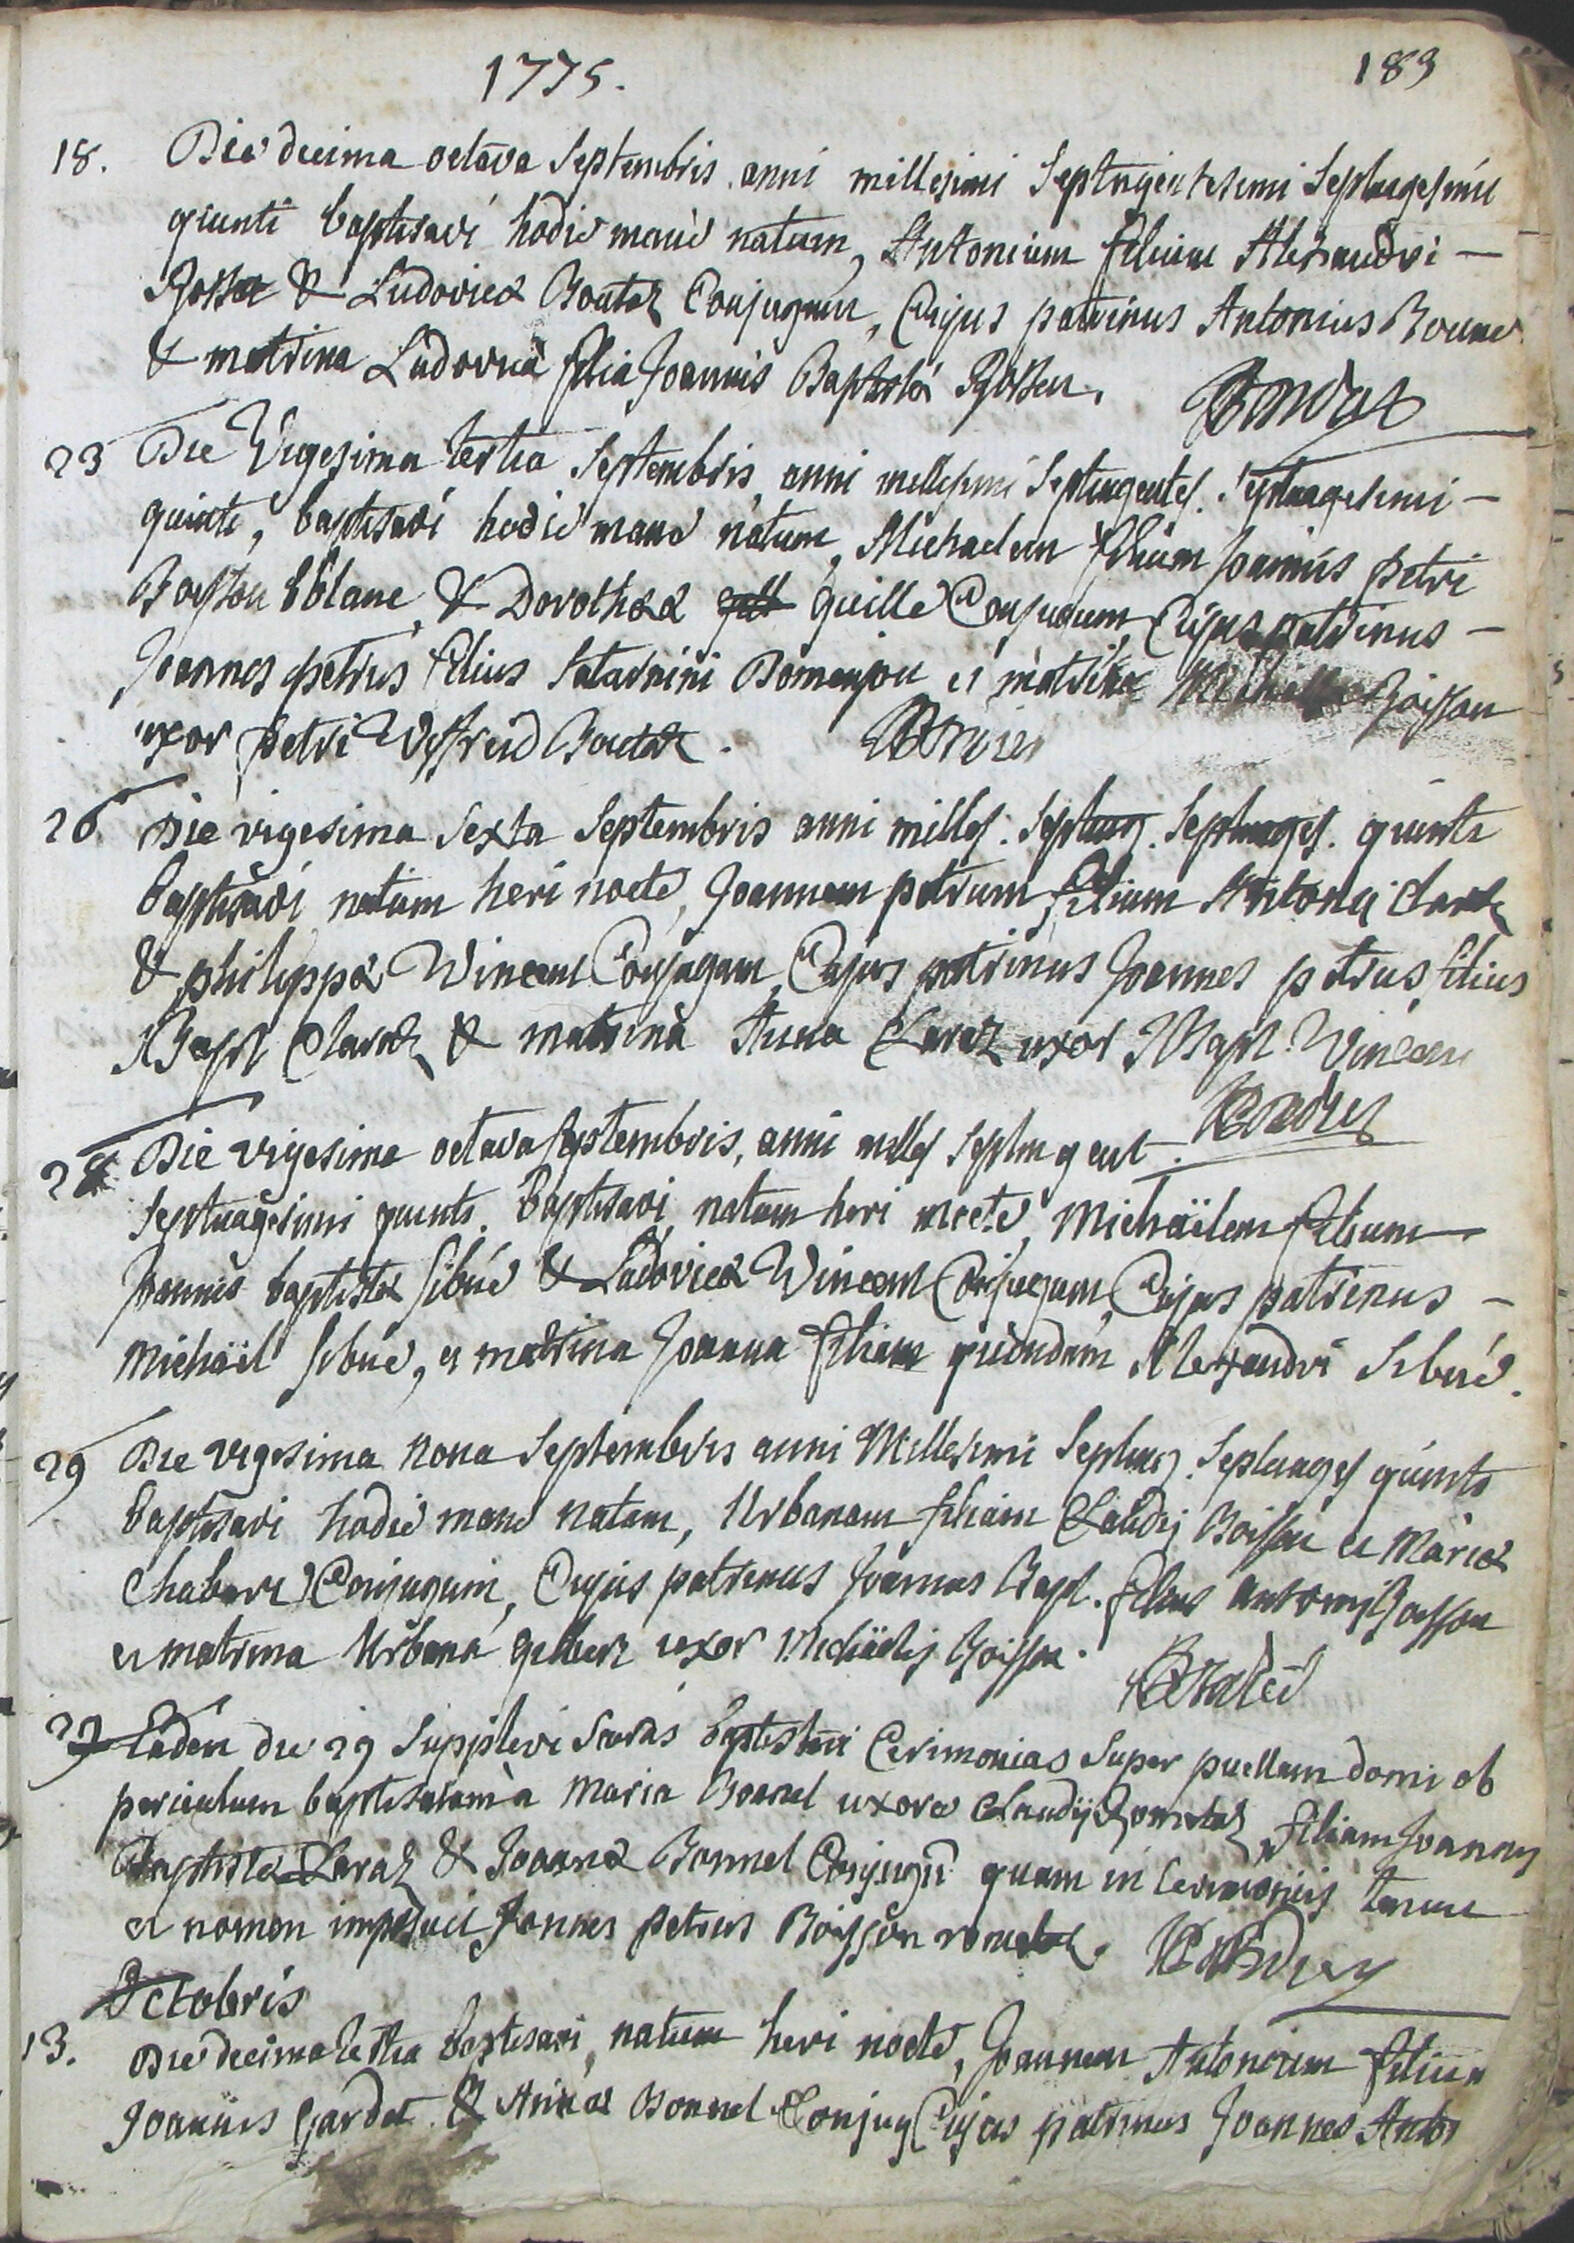 1775.
183
18. Die decima octava Septembris anni millesimi Septuagentesimi Septuagesimi
quinti baptisavi hodie mane natum, Antonium filium Alexandri —
& Ludovicæ Boutaz Conjugum, Cujus patrinus Antonius
& matrina Ludovica filia Joannis Baptistæ
23 Die Vigesima tertia Septembris, anni millesimi Septuagentes. Septuagesimi —
quinti, baptisavi hodie mane natum, Michaelem filium Joannis petri
Boisson & Dorotheæ Gille Conjugum Cujus patrinus —
Joannes petrus filius Saturnini et matrina Boisson
uxor petri
26 Die vigesima Sexta Septembris anni milles. Septuag. Septuages. quinti
baptisavi natum heri nocte, Joannem petrum filium Antonij Claraz
& philippæ Wincent Conjugum, Cujus patrinus Joannes petrus filius
J Bapt Claraz & matrina Anna Claraz uxor J Bapt. Wincent
28 Die vigesima octava Septembris, anni milles Septuagent.
Septuagesimi quinti. baptisavi natum heri nocte, Michäelem filium
Joannis baptistæ Sibué & Ludovicæ Wincent Conjugum, Cujus patrinus —
Michäel Sibué, et matrina Joanna filiam quondam Alexandri Sibué.
29 Die vigesima nona Septembris anni Millesimi Septuag. Septuages quinti
baptisavi hodie mane natam, Urbanam filiam Claudij Boisson et Mariæ
Conjugum, Cujus patrinus Joannes Bapt. filius Antonij Boisson
et matrina Urbana uxor Michäelis Boisson.
29 Eadem die 29 Supplevi Sacras baptismi Cerimonias Super puellam domi ob
periculum baptisatam a Maria Bonnel uxore Claudij filiam Joannis
Baptistæ Claraz & Joannæ Bonnel Conjugū quam in Cerimoniis tenuit
et nomen imposuit Joannes petrus Boisson
Octobris
13. Die decima tertia baptisavi, natum heri nocte, Joannem Antonium filium
Joannis Gardet & Annæ Bonnel Conjug Cujus patrinus Joannes Anto